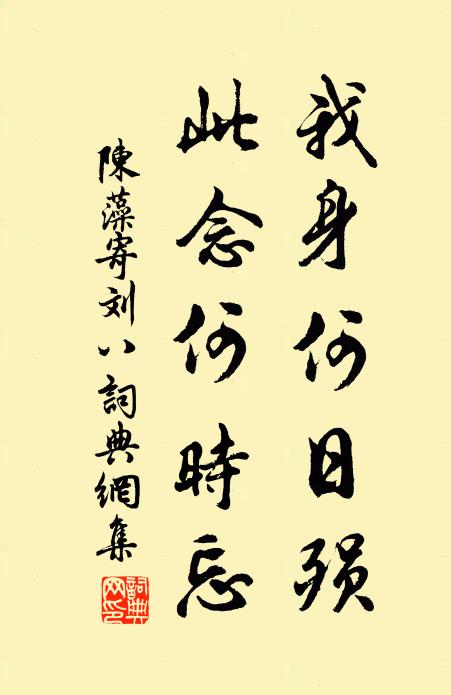 我身何日殞
此念何時忘
陳藻寄刘八詞典網集
詞典网印